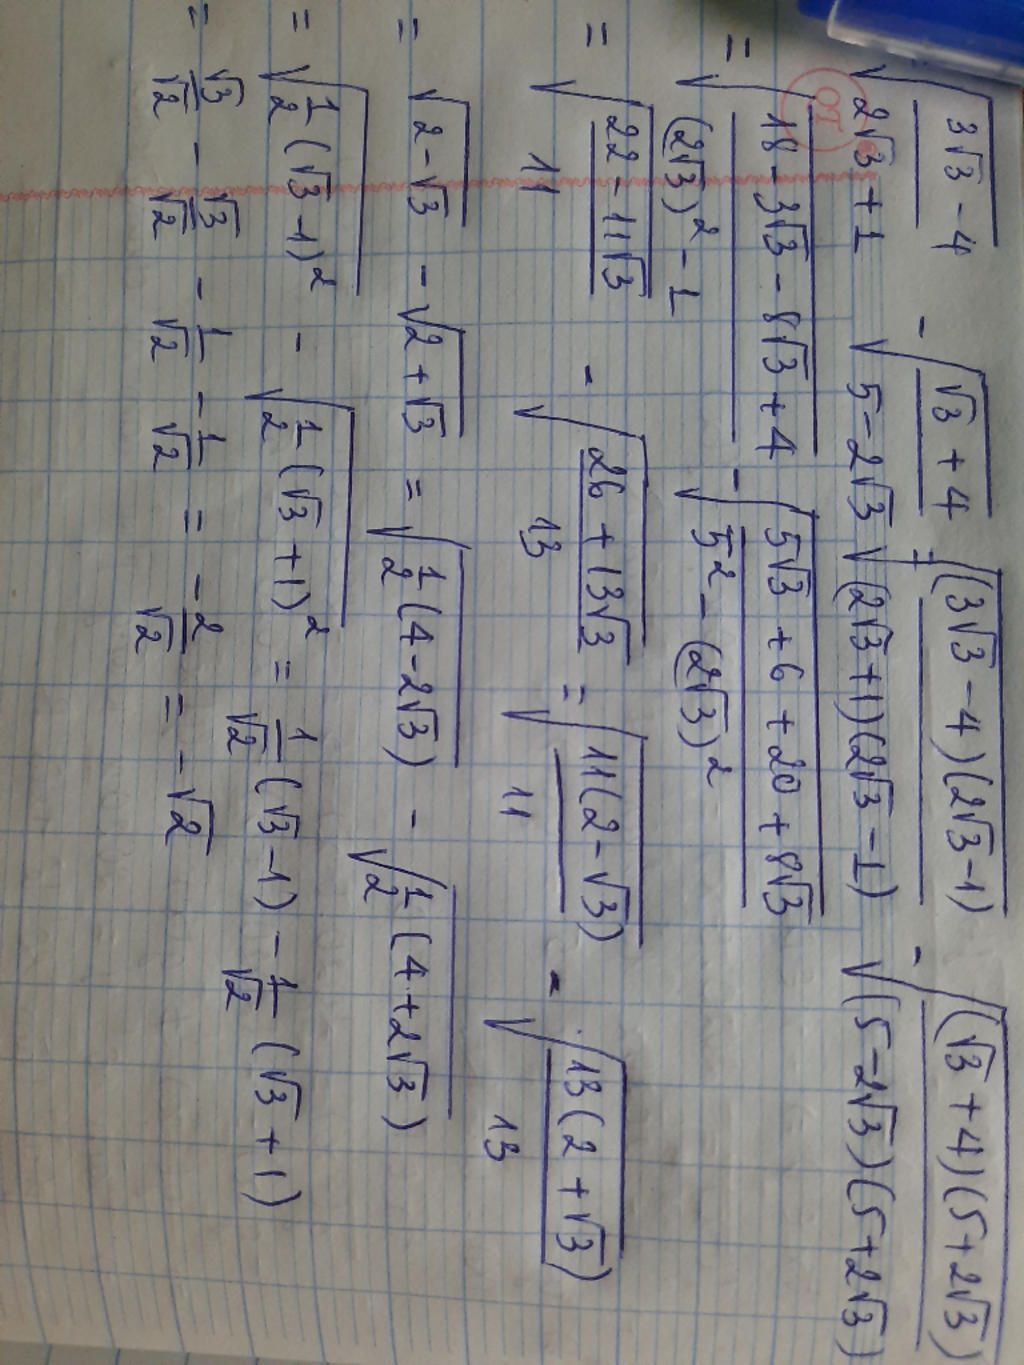 √((3√3 - 4)/(2√3 + 1)) - √((√3 + 4)/(5 - 2√3)) = √((3√3 - 4)(2√3 - 1)/((2√3 + 1)(2√3 - 1))) - √((√3 + 4)(5 + 2√3)/((5 - 2√3)(5 + 2√3)))
= √((18 - 3√3 - 8√3 + 4)/((2√3)² - 1)) - √((5√3 + 6 + 20 + 8√3)/(5² - (2√3)²))
= √((22 - 11√3)/11) - √((26 + 13√3)/13) = √(11(2 - √3)/11) - √(13(2 + √3)/13)
= √(2 - √3) - √(2 + √3) = √(1/2 (4 - 2√3)) - √(1/2 (4 + 2√3))
= √(1/2 (√3 - 1)²) - √(1/2 (√3 + 1)²) = 1/√2 (√3 - 1) - 1/√2 (√3 + 1)
= √3/√2 - √3/√2 - 1/√2 - 1/√2 = -2/√2 = -√2